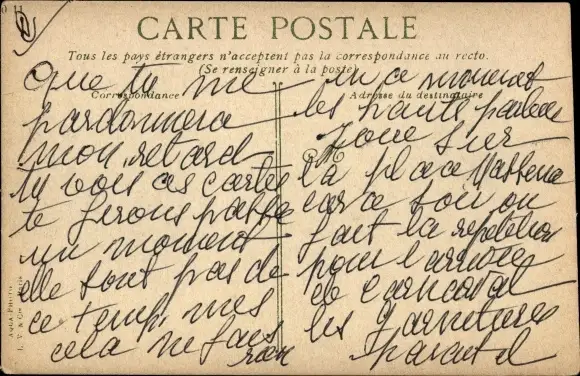 CARTE POSTALE
Tous les pays étrangers n'acceptent pas la correspondance au recto.
(Se renseigner à la poste)
Correspondance
Adresse du destinataire
que tu me
pardonnera
mon retard
tu vois ces cartes
te ferons passe
un moment
elle sont pas de
ce temp, mes
cela ne fais
rien
en ce moment
les hauts parleur
joue sur
la place Massena
car ce soir on
fait la repetition
pour l'arrivée
de Carnaval
les garnitures
AQUA-PHOTO
L. V. & Cie